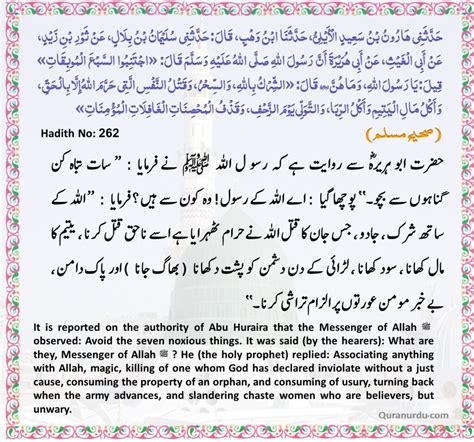 حَدَّثَنِي هَارُونُ بْنُ سَعِيدٍ الْأَيْلِيُّ، حَدَّثَنَا ابْنُ وَهْبٍ، قَالَ: حَدَّثَنِي سُلَيْمَانُ بْنُ بِلَالٍ، عَنْ ثَوْرِ بْنِ زَيْدٍ،
عَنْ أَبِي الْغَيْثِ، عَنْ أَبِي هُرَيْرَةَ أَنَّ رَسُولَ اللهِ صَلَّى اللهُ عَلَيْهِ وَسَلَّمَ قَالَ: «اجْتَنِبُوا السَّبْعَ الْمُوبِقَاتِ»
قِيلَ: يَا رَسُولَ اللهِ، وَمَا هُنَّ؟ قَالَ: «الشِّرْكُ بِاللهِ، وَالسِّحْرُ، وَقَتْلُ النَّفْسِ الَّتِي حَرَّمَ اللهُ إِلَّا بِالْحَقِّ،
وَأَكْلُ مَالِ الْيَتِيمِ وَأَكْلُ الرِّبَا، وَالتَّوَلِّي يَوْمَ الزَّحْفِ، وَقَذْفُ الْمُحْصِنَاتِ الْغَافِلَاتِ الْمُؤْمِنَاتِ»
Hadith No: 262 (صحیح مسلم)
حضرت ابو ہریرہؓ سے روایت ہے کہ رسول اللہ ﷺ نے فرمایا : ” سات تباہ کن
گناہوں سے بچو۔“ پوچھا گیا : اے اللہ کے رسول! وہ کون سے ہیں؟ فرمایا : ”اللہ کے
ساتھ شرک ، جادو ، جس جان کا قتل اللہ نے حرام ٹھہرایا ہے اسے ناحق قتل کرنا ، یتیم کا
مال کھانا ، سود کھانا ، لڑائی کے دن دشمن کو پشت دکھانا ( بھاگ جانا ) اور پاک دامن ،
بے خبر مومن عورتوں پر الزام تراشی کرنا ۔ “
It is reported on the authority of Abu Huraira that the Messenger of Allah ﷺ
observed: Avoid the seven noxious things. It was said (by the hearers): What are
they, Messenger of Allah ﷺ ? He (the holy prophet) replied: Associating anything
with Allah, magic, killing of one whom God has declared inviolate without a just
cause, consuming the property of an orphan, and consuming of usury, turning back
when the army advances, and slandering chaste women who are believers, but
unwary.
Quranurdu.com